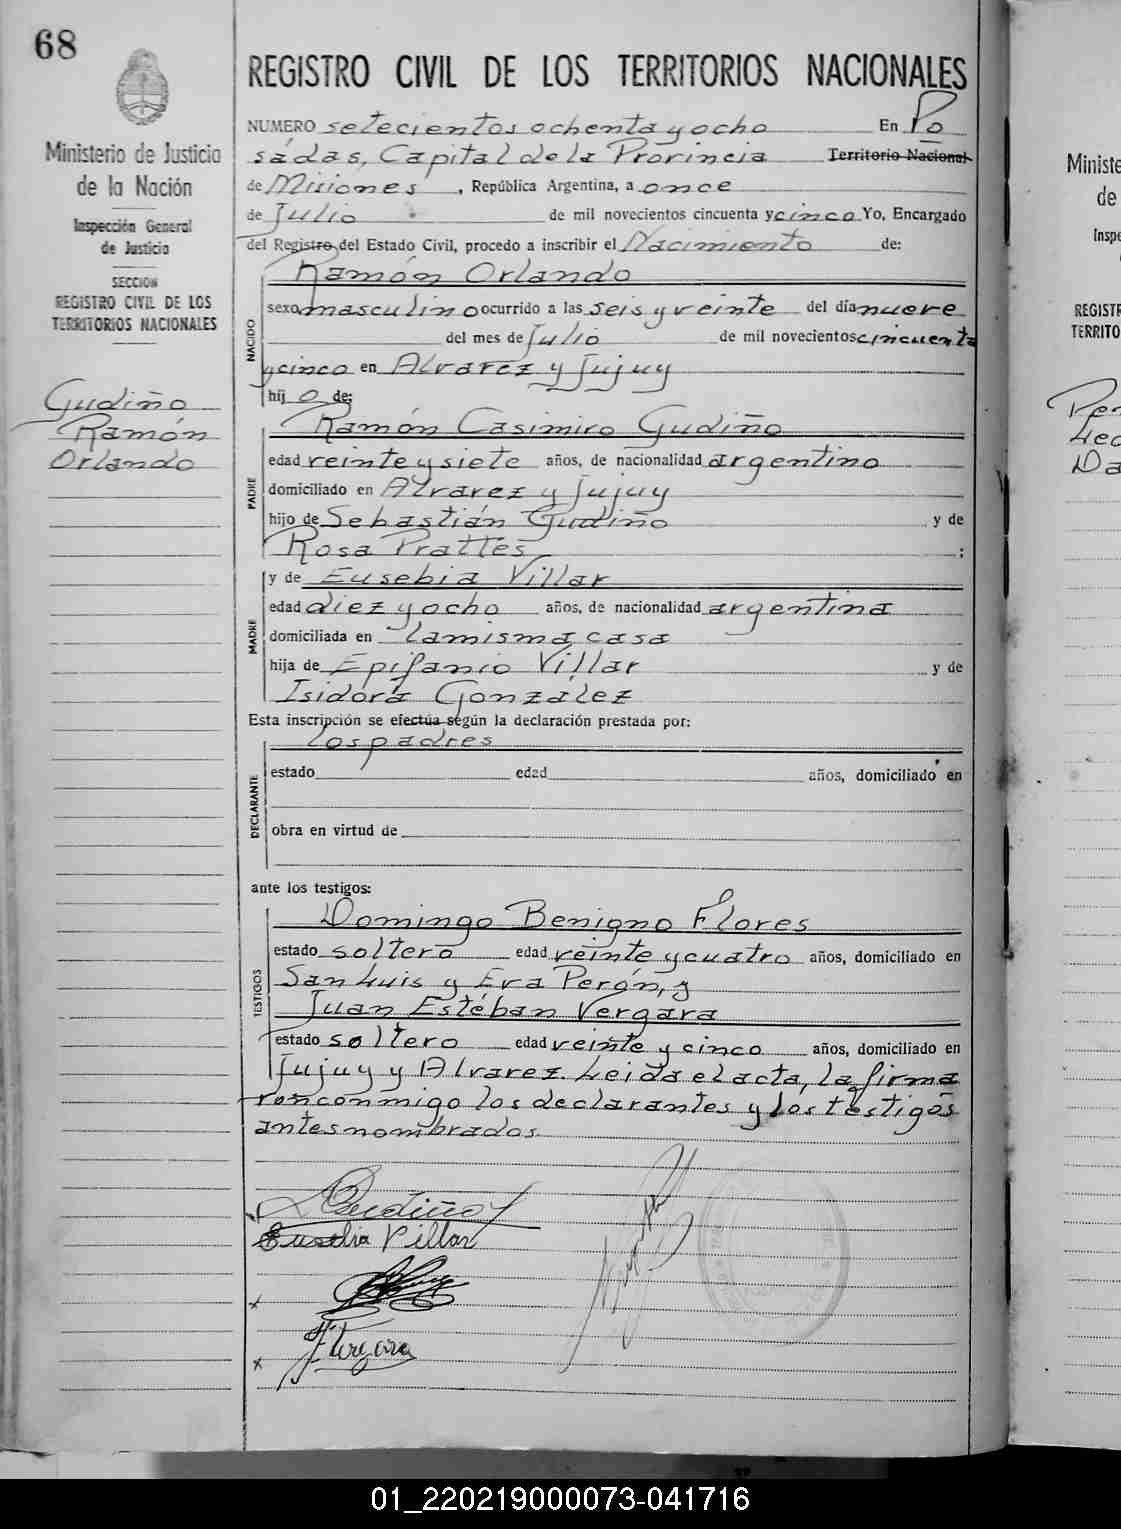 68
Ministerio de Justicia
de la Nación
Inspección General
de Justicia
SECCION
REGISTRO CIVIL DE LOS
TERRITORIOS NACIONALES
Gudiño
Ramón
Orlando
REGISTRO CIVIL DE LOS TERRITORIOS NACIONALES
NUMERO setecientos ochenta y ocho En Po
sádas, Capital de la Provincia Territorio Nacional
de Misiones, República Argentina, a once
de Julio de mil novecientos cincuenta y cinco Yo, Encargado
del Registro del Estado Civil, procedo a inscribir el Nacimiento de:
NACIDO
Ramón Orlando
sexo masculino ocurrido a las seis y veinte del día nueve
del mes de Julio de mil novecientos cincuenta
y cinco en Alvarez y Jujuy
hij o de:
PADRE
Ramón Casimiro Gudiño
edad veinte y siete años, de nacionalidad argentino
domiciliado en Alvarez y Jujuy
hijo de Sebastián Gudiño y de
Rosa Prattes ;
MADRE
y de Eusebia Villar
edad diez y ocho años, de nacionalidad argentina
domiciliada en la misma casa
hija de Epifanio Villar y de
Isidora Gonzalez
Esta inscripción se efectúa según la declaración prestada por:
DECLARANTE
los padres
estado edad años, domiciliado en
obra en virtud de
ante los testigos:
TESTIGOS
Domingo Benigno Flores
estado soltero edad veinte y cuatro años, domiciliado en
San Luis y Eva Perón, y
Juan Estéban Vergara
estado soltero edad veinte y cinco años, domiciliado en
Jujuy y Alvarez. Leida el acta, la firma
ron conmigo los declarantes y los testigos
antes nombrados.
Gudiño
Eusebia Villar
J. Vergara
Ministe
de
Inspe
REGISTR
TERRITO
Per
Leo
Da
01_220219000073-041716